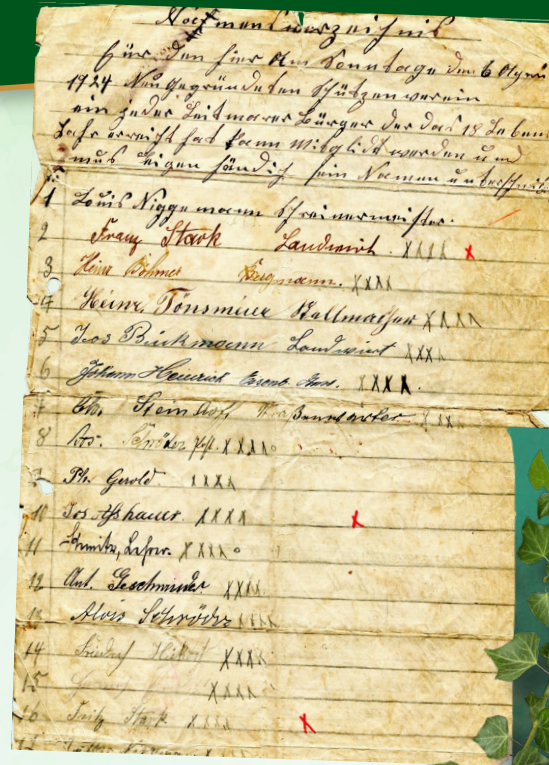 Nahmensverzeichnis
für den hier Am Sonntage den 6
1924 Neugegründeten Schützenverein
ein jeder Leitmarer Bürger der das 18 Leben
Jahr erreicht hat kann Mitglidt werden und
mus eigen händich sein Namen unterschrei
1 Louis Niggemann Schreinermeister.
2 Franz Stark Landwirt. XXXX X
3 Heinr Böhmer Bergmann. XXXX
4 Heinr. Tönsmeier Stellmacher XXXX
5 Jos Brückmann Landwirt XXXX
6 Johann Heinrich XXXX.
7 Steinhoff Straßenwärter XXX
8 Schröder XXXX
9 Ph. Gerold. XXXX
10 Jos Ashauer. XXXX X
11 Lehrer. XXXX
12 Ant. Geschwinder. XXXX
13 Alois Schröder XXXX
14 Friedrich XXXX
15 XXXX
16 Fritz Stark XXXX X
17